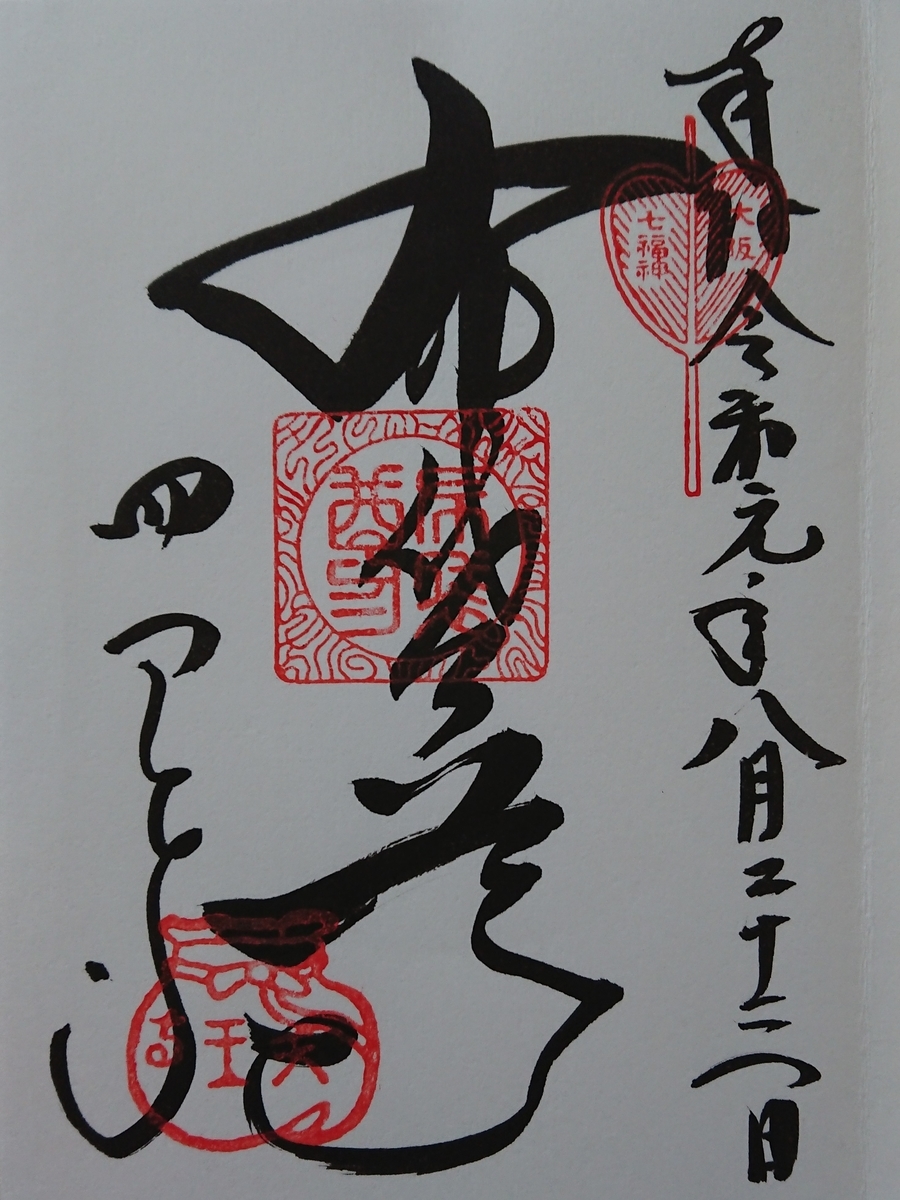 奉拝 令和元年八月二十 日
大阪
七福神
布袋尊
四天王寺